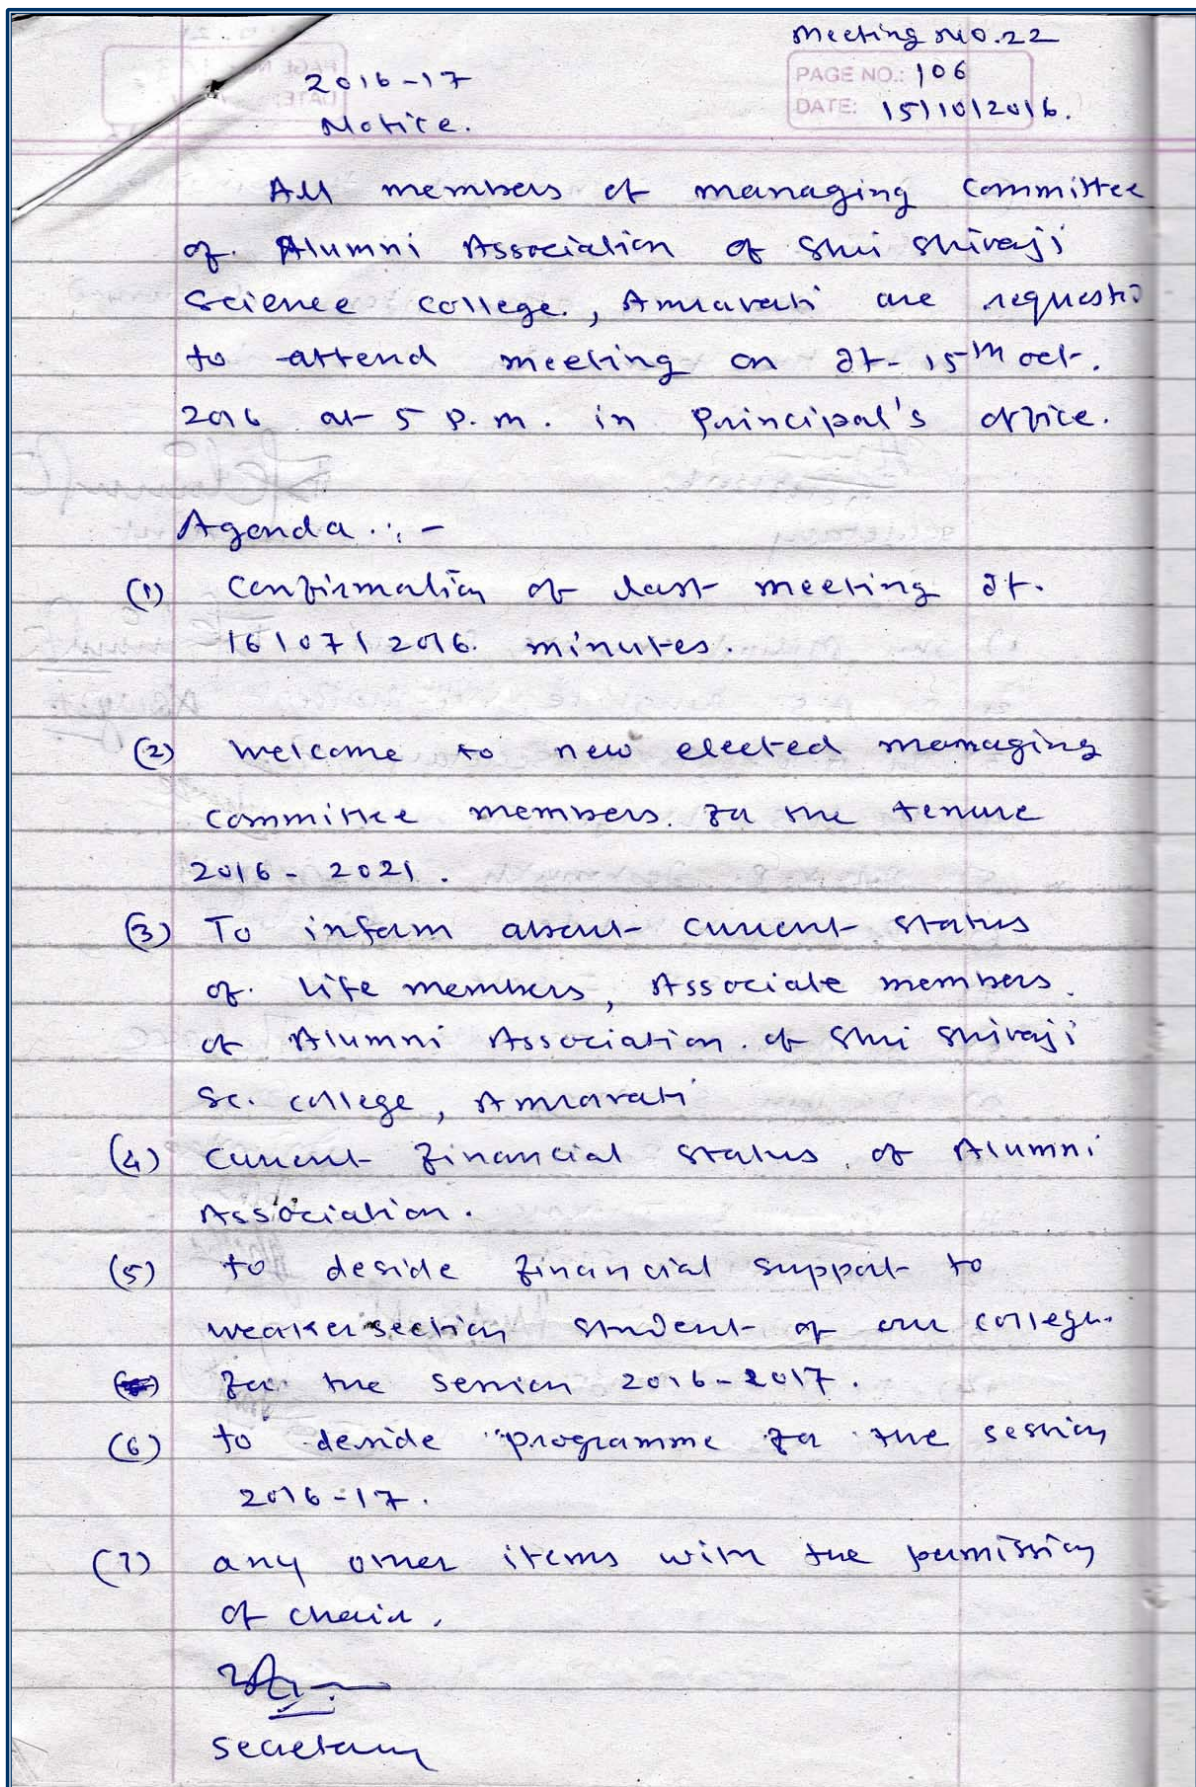 Meeting No. 22
2016-17
PAGE NO.: 106
Notice.
DATE: 15/10/2016.
All members of managing committee
of Alumni Association of Shri Shivaji
Science College., Amravati are requested
to attend meeting on dt- 15th oct.
2016 at 5 P.m. in Principal's office.
Agenda :-
(1) Confirmation of last meeting dt.
16/07/2016. minutes.
(2) Welcome to new elected managing
committee members. for the tenure
2016 - 2021.
(3) To inform about current status
of. life members, Associate members.
of Alumni Association. of Shri Shivaji
Sc. college, Amravati
(4) Current financial status. of Alumni
Association.
(5) to deside financial support to
weaker section student of our college.
for the session 2016-2017.
(6) to deside programme for the session
2016-17.
(7) any other items with the permission
of chair.
Secretary